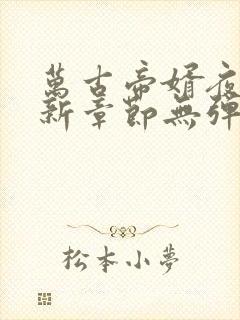 萬古帝婿夜
新章節無彈
松本小夢